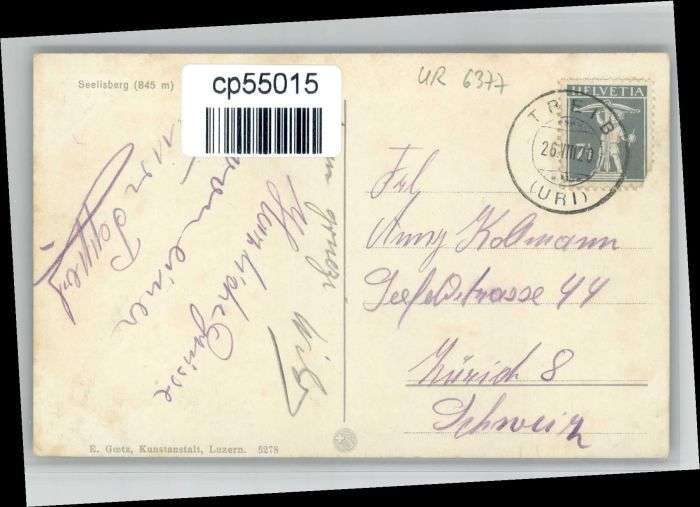 Seelisberg (845 m)
cp55015
UR 6377
HELVETIA
7½
TREIB
26.VIII.20
(URI)
Frl.
Anny Kollmann
Seefeldstrasse 44
Zürich 8
Schweiz
Herzliche Grüsse
von einer
E. Goetz, Kunstanstalt, Luzern. 5278